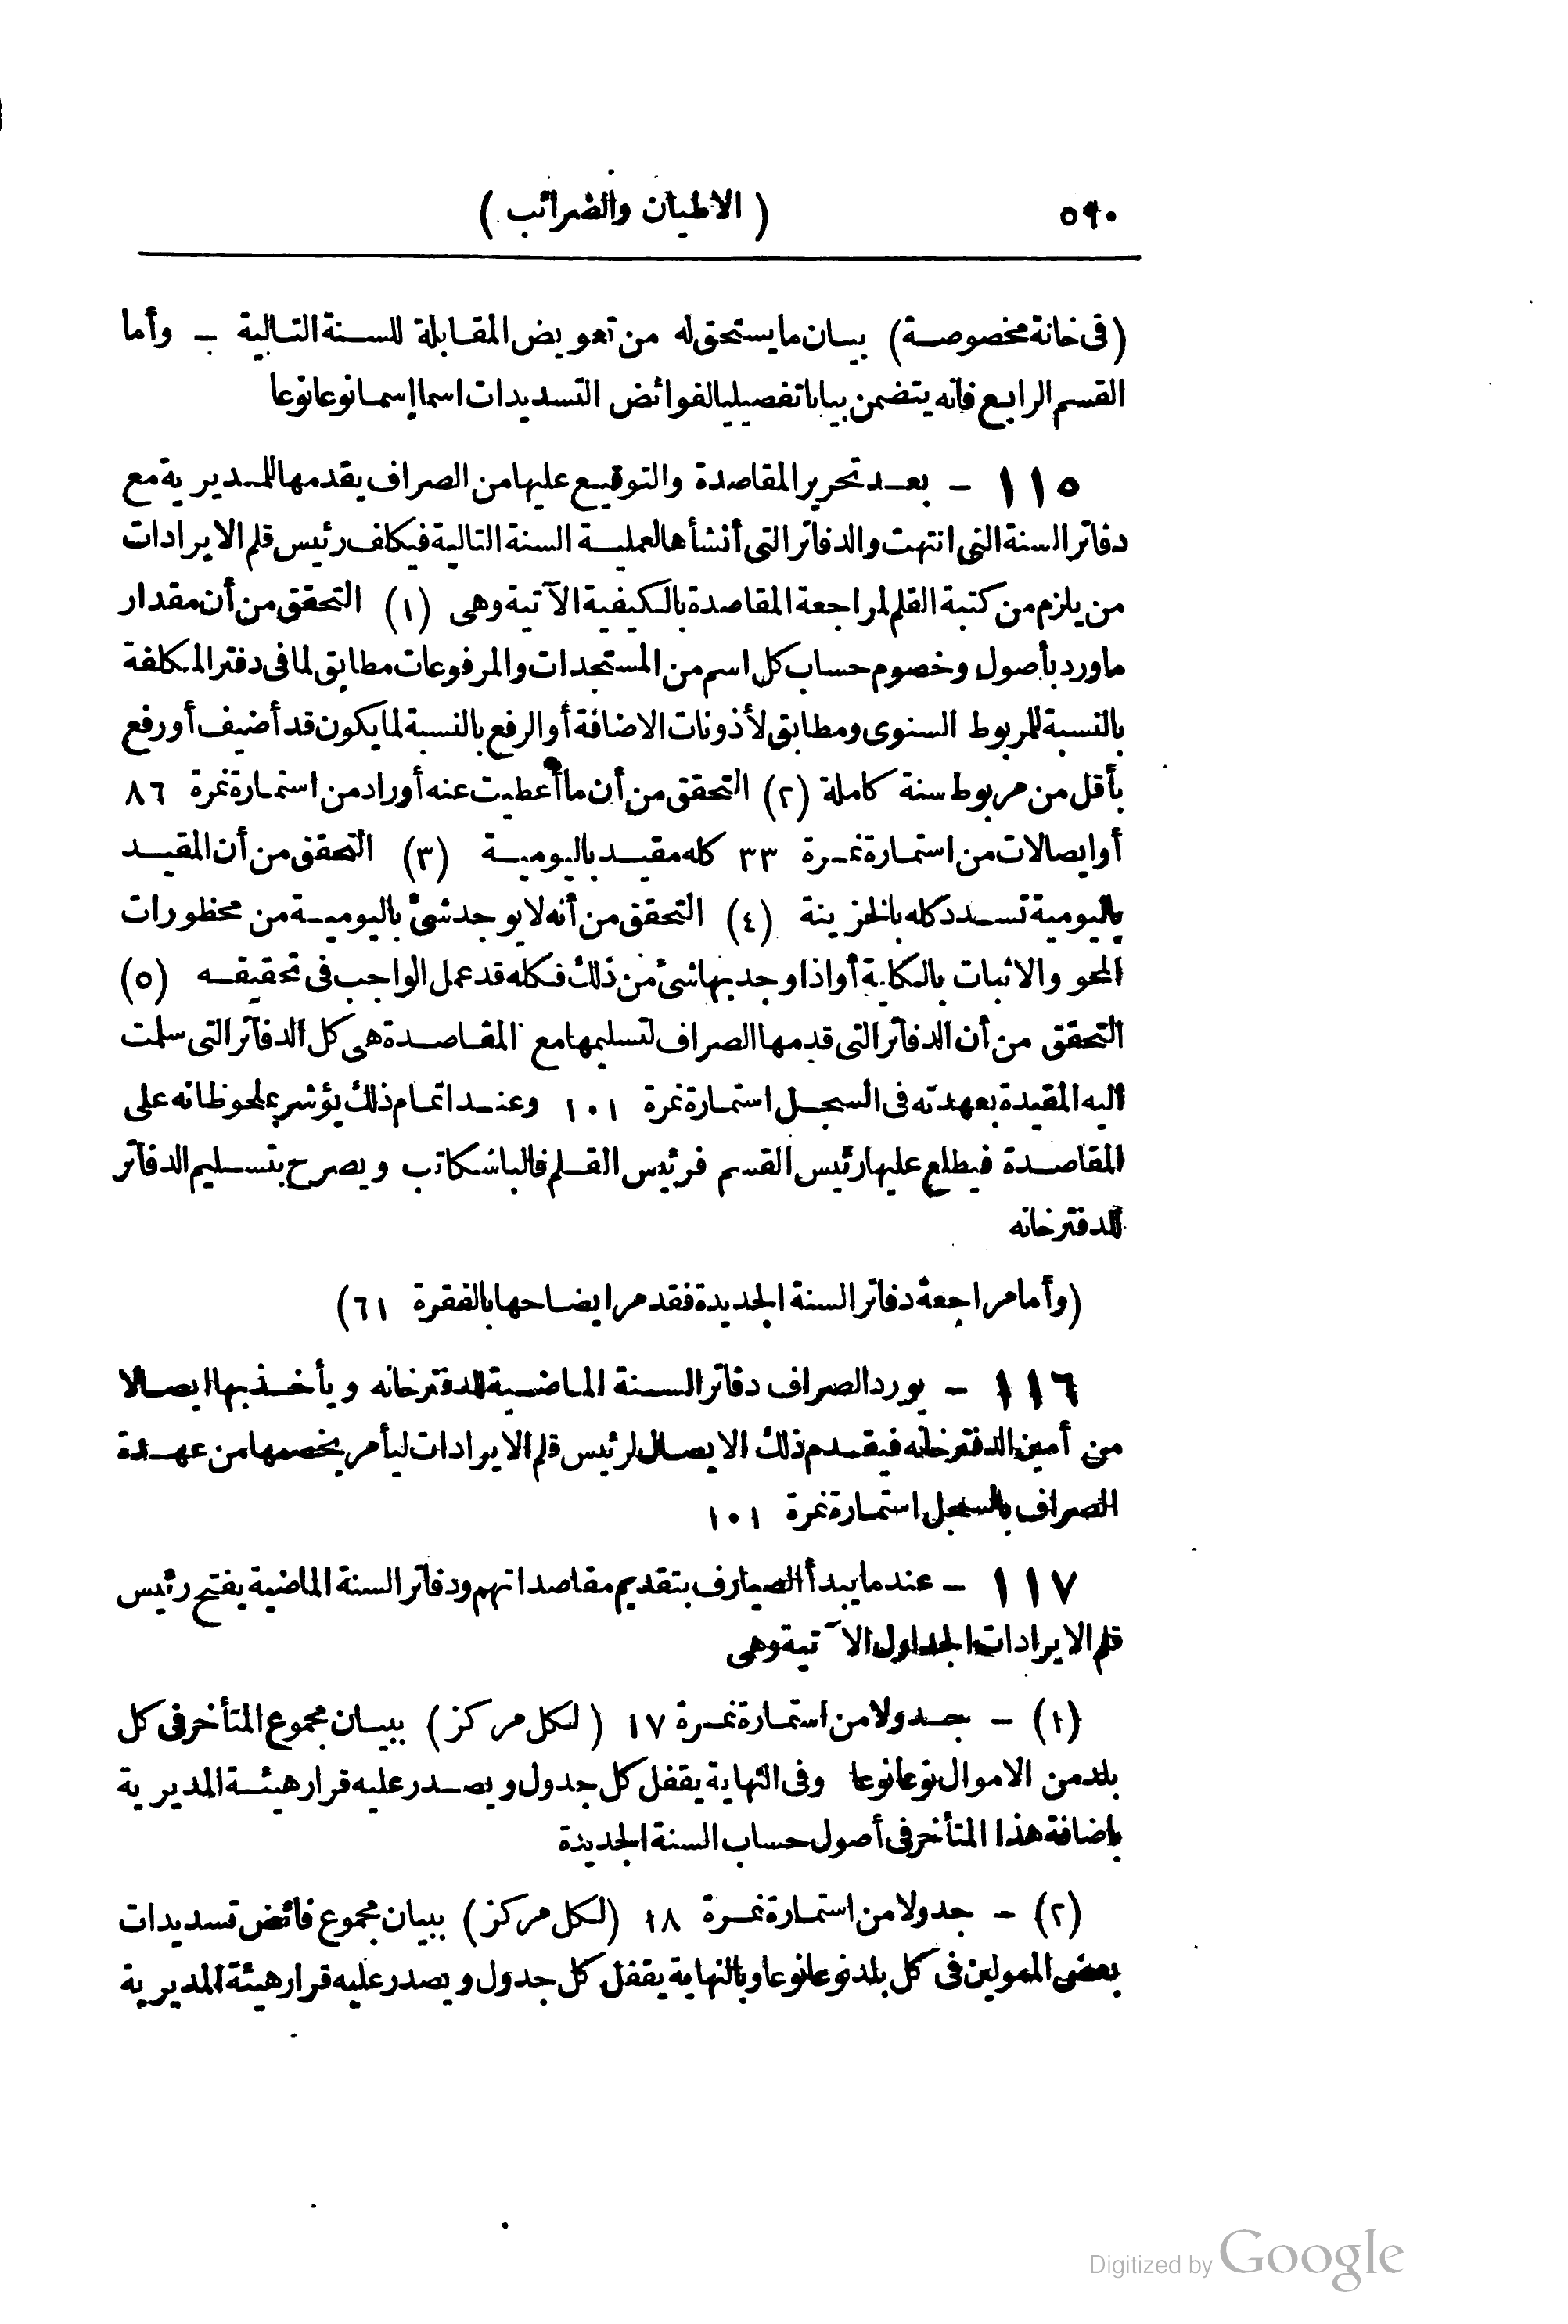 ٥٩٠ ( الاطيان والضرائب )
(فى خانة مخصوصة) بيان مايستحق له من تعويض المقابلة للسنة التالية - وأما
القسم الرابع فانه يتضمن بيانا تفصيليا لفوائض التسديدات اسما إسما نوعا نوعا
١١٥ - بعد تحرير المقاصدة والتوقيع عليها من الصراف يقدمها للمديرية مع
دفاتر السنة التى انتهت والدفاتر التى أنشأها لعملية السنة التالية فيكلف رئيس قلم الايرادات
من يلزم من كتبة القلم لمراجعة المقاصدة بالكيفية الآتية وهى (١) التحقق من أن مقدار
ماورد بأصول وخصوم حساب كل اسم من المستجدات والمرفوعات مطابق لما فى دفتر المكلفة
بالنسبة للمربوط السنوى ومطابق لأذونات الاضافة أو الرفع بالنسبة لما يكون قد أضيف أو رفع
بأقل من مربوط سنة كاملة (٢) التحقق من أن ما أعطيت عنه أوراد من استمارة نمرة ٨٦
أو ايصالات من استمارة نمرة ٣٣ كله مقيد باليومية (٣) التحقق من أن المقيد
باليومية تسدد كله بالخزينة (٤) التحقق من أنه لايوجد شئ باليومية من محظورات
المحو والاثبات بالكلية أو اذا وجد بها شئ من ذلك فكله قد عمل الواجب فى تحقيقه (٥)
التحقق من أن الدفاتر التى قدمها الصراف لتسليمها مع المقاصدة هى كل الدفاتر التى سلمت
اليه المقيدة بعهدته فى السجل استمارة نمرة ١٠١ وعند اتمام ذلك يؤشر بملحوظاته على
المقاصدة فيطلع عليها رئيس القسم فرئيس القلم فالباشكاتب ويصرح بتسليم الدفاتر
للدفترخانه
(وأما مراجعة دفاتر السنة الجديدة فقد مر ايضاحها بالفقرة ٦١)
١١٦ - يورد الصراف دفاتر السنة الماضية للدفترخانه ويأخذ بها ايصالا
من أمين الدفترخانه فيقدم ذلك الايصال لرئيس قلم الايرادات ليأمر بخصمها من عهدة
الصراف بالسجل استمارة نمرة ١٠١
١١٧ - عندما يبدأ الصيارف بتقديم مقاصداتهم ودفاتر السنة الماضية يفتح رئيس
قلم الايرادات الجداول الآتية وهى
(١) - جدولا من استمارة نمرة ١٧ (لكل مركز) ببيان مجموع المتأخر فى كل
بلد من الاموال نوعا نوعا وفى النهاية يقفل كل جدول ويصدر عليه قرار هيئة المديرية
باضافة هذا المتأخر فى أصول حساب السنة الجديدة
(٢) - جدولا من استمارة نمرة ١٨ (لكل مركز) ببيان مجموع فائض تسديدات
بعض الممولين فى كل بلد نوعا نوعا وبالنهاية يقفل كل جدول ويصدر عليه قرار هيئة المديرية
Digitized by Google